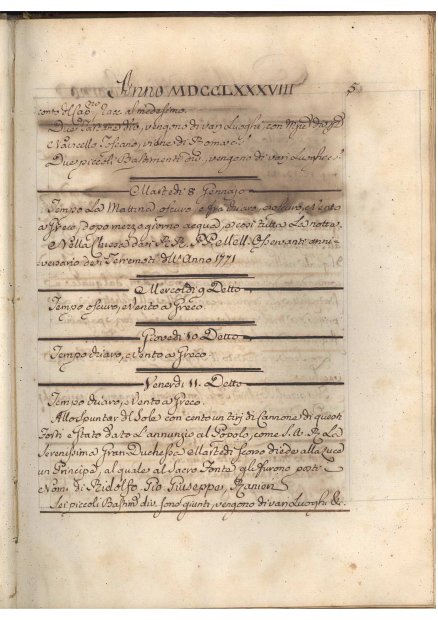 Anno MDCCLXXXVIII 5
al medesimo.
vengono di vari Luoghi, con
e Navicello Toscano, viene di
Due piccoli Bastimenti div., vengono di vari Luoghi &c.
Martedì 8 Gennajo
Tempo La Mattina oscuro, e
a Greco, dopo mezzo giorno acqua, e così tutta La notte.
Nella Chiesa dei R.R. P.P. Osservanti anni-
versario de' Terremoti dell'Anno 1771
Mercoldì 9 Detto
Tempo oscuro, e Vento a Greco.
Giovedì 10 Detto
Tempo chiaro, e Vento a Greco
Venerdì 11. Detto
Tempo chiaro, e Vento a Greco.
Allo spuntar del Sole con cento un tirj di Cannone di questi
Forti è stato dato L'annunzio al Popolo, come S. A. R. La
Serenissima Gran Duchessa Martedì scorso diede alla Luce
un Principe, al quale al Sacro Fonte gli furono posti
i Nomi di Ridolfo, Pio Giuseppe, Ranieri
Sei piccoli Bastim. div. sono giunti, vengono di vari Luoghi &c.